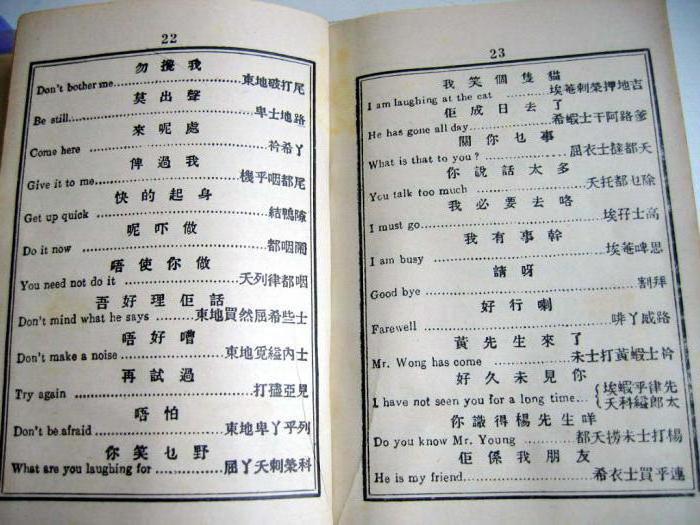 22
勿攪我
Don't bother me 東地破打尾
莫出聲
Be still 卑士地路
來呢處
Come here 衿希丫
俾過我
Give it to me 機乎咽都尾
快的起身
Get up quick 結鴨
呢吓做
Do it now 都咽
唔使你做
You need not do it 天列律都咽
吾好理佢話
Don't mind what he says 東地買然屈希些士
唔好嘈
Don't make a noise 東地覓縊內士
再試過
Try again 打擂亞見
唔怕
Don't be afraid 東地卑丫乎列
你笑乜野
What are you laughing for 屈丫天刺榮科
23
我笑個隻貓
I am laughing at the cat 埃菴刺榮押地吉
佢成日去了
He has gone all day 希蝦士干阿路爹
關你乜事
What is that to you? 屈衣士撻都天
你說話太多
You talk too much 天托都乜除
我必要去咯
I must go 埃孖士高
我有事幹
I am busy 埃菴啤思
請呀
Good bye 割拜
好行喇
Farewell 啡丫威路
黃先生來了
Mr. Wong has come 未士打黃蝦士衿
好久未見你
I have not seen you for a long time 埃蝦乎律先
天科縊郎太
你識得楊先生咩
Do you know Mr. Young 都天撈未士打楊
佢係我朋友
He is my friend 希衣士買乎連